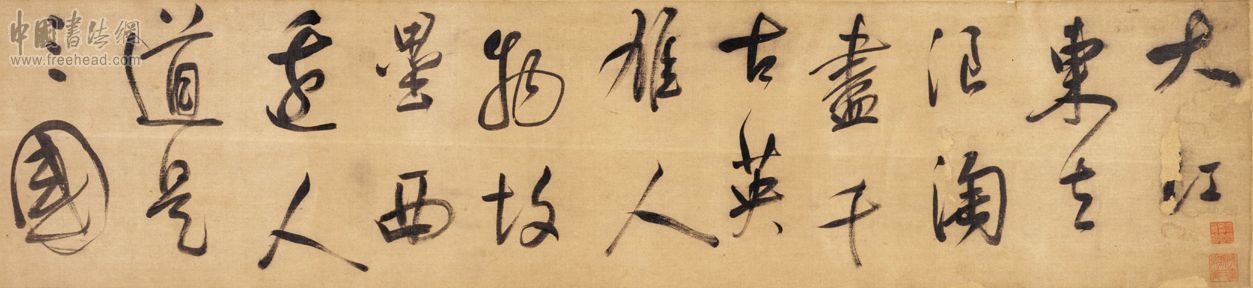 大江
東去
浪淘
盡千
古英
雄人
物故
壘西
邊人
道是
三國
中國書法網
www.freehead.com